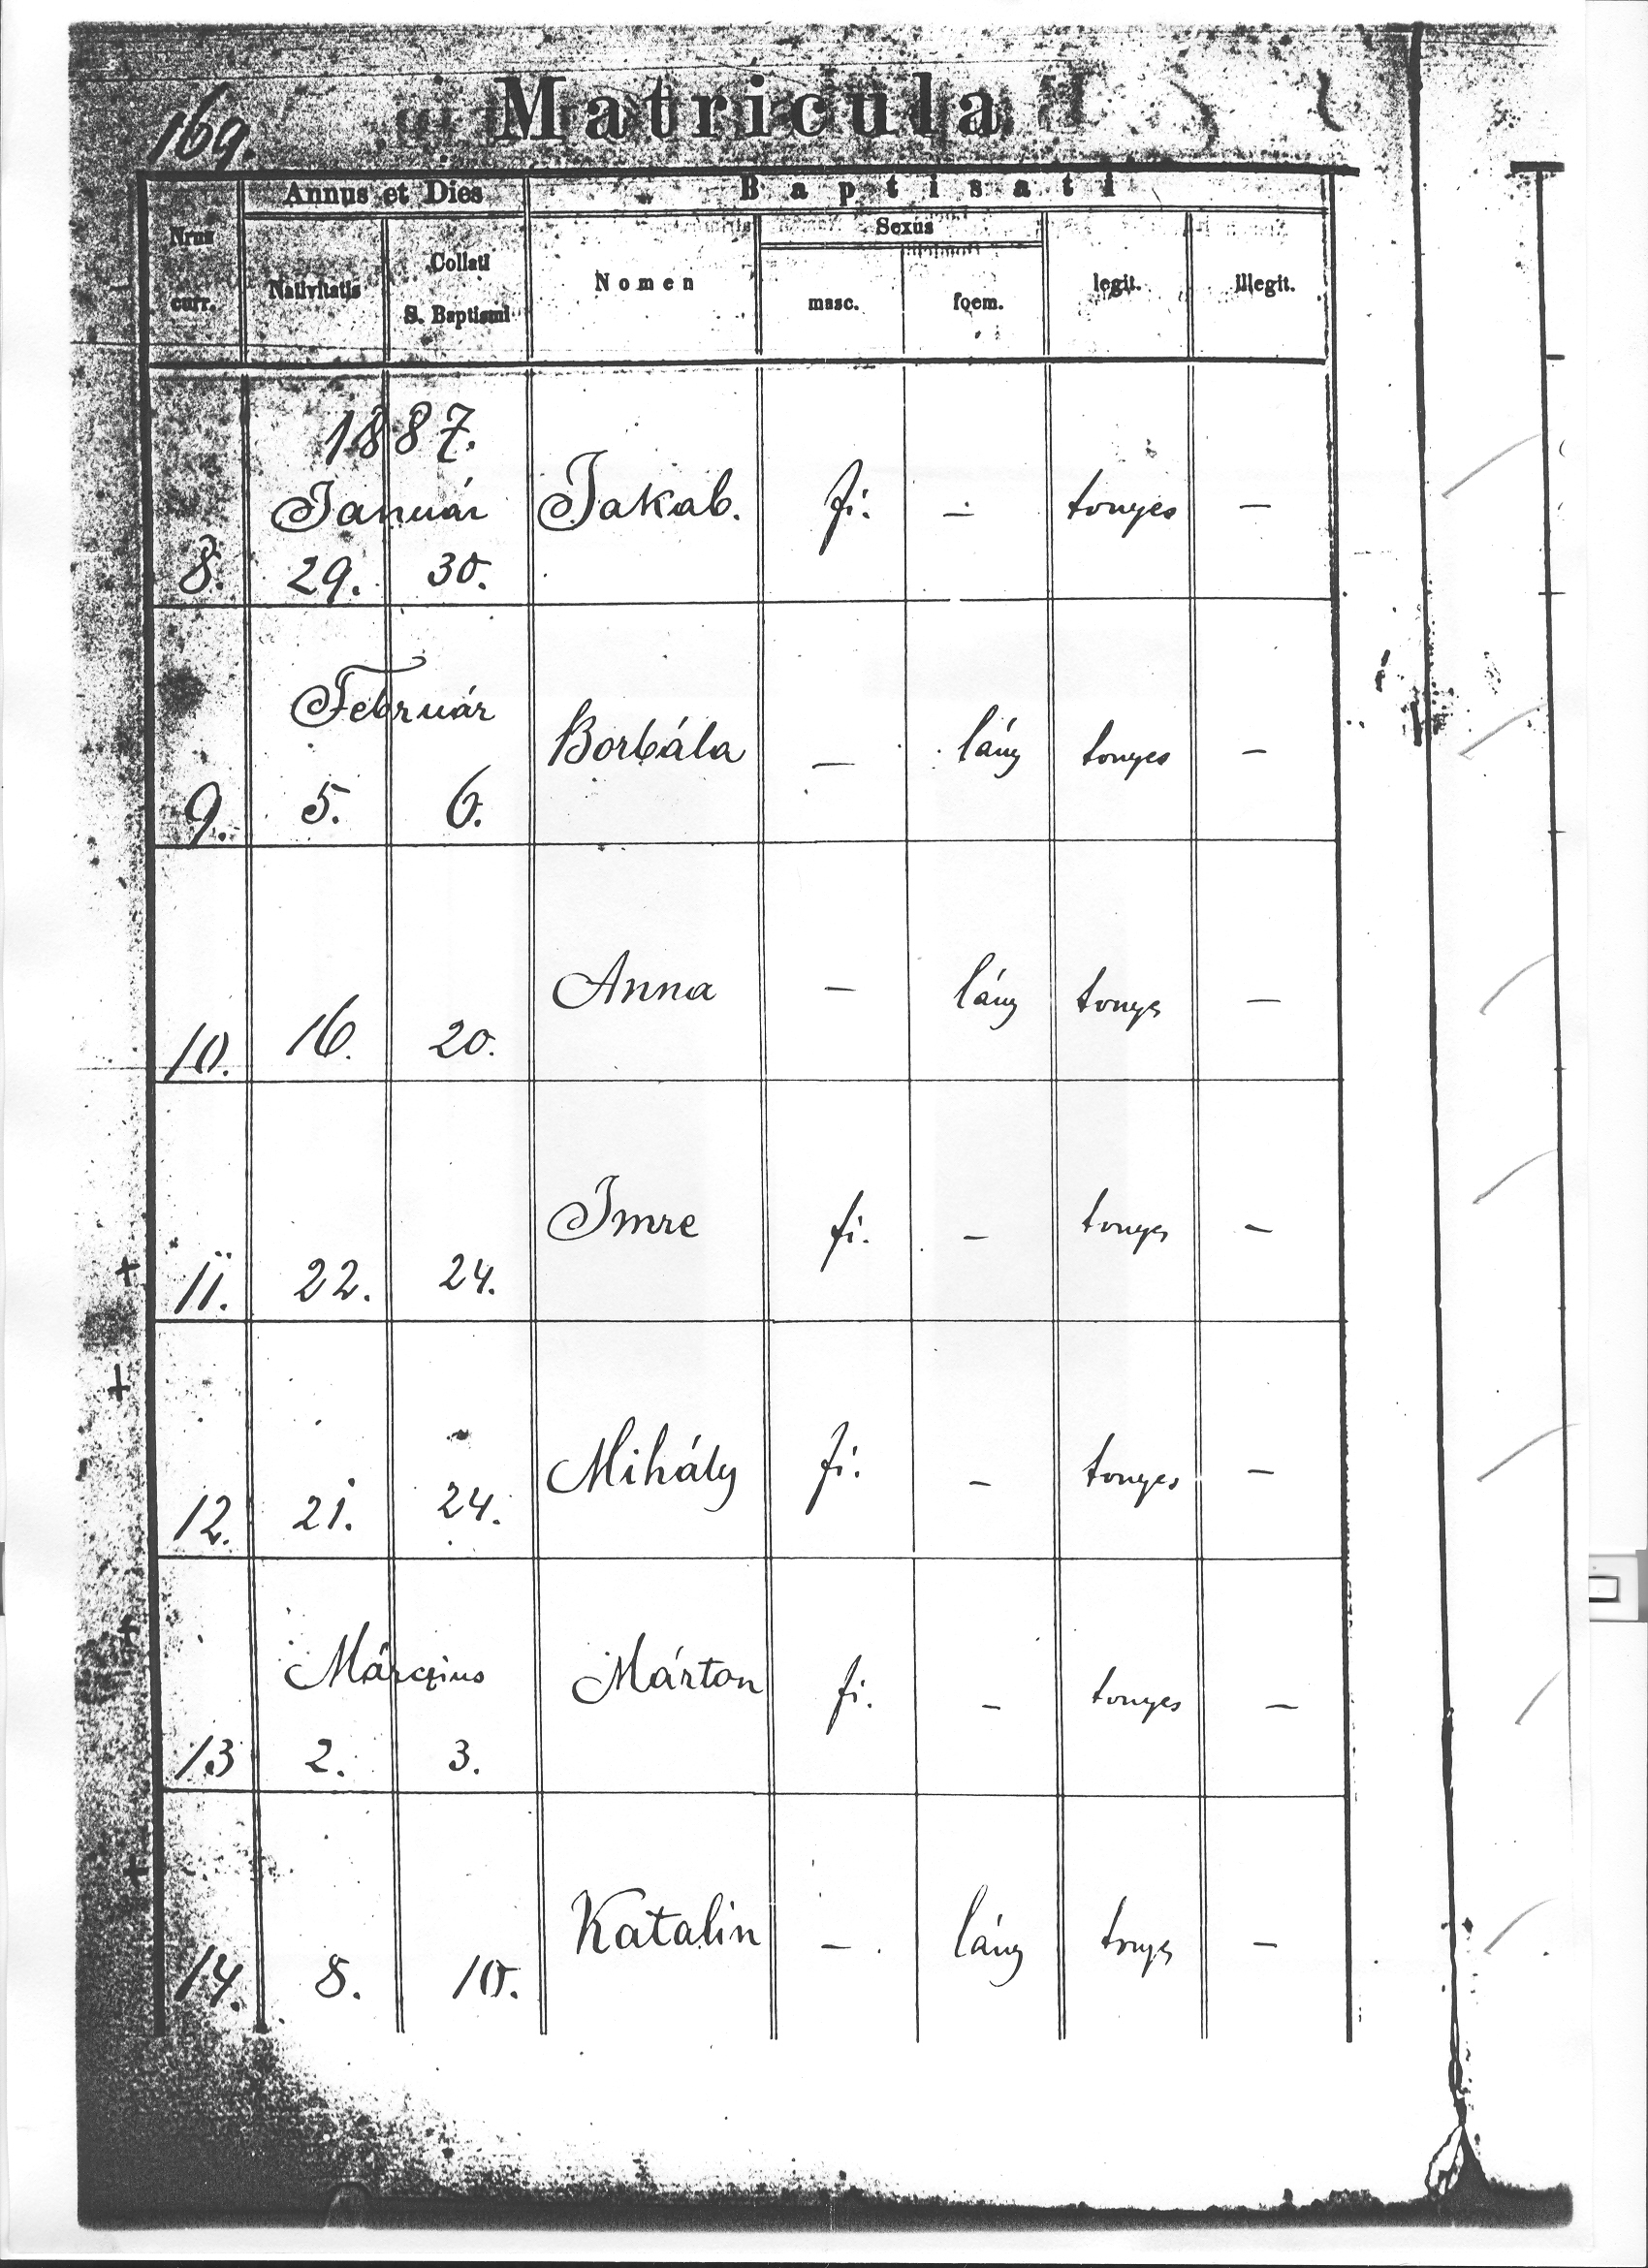 169.
Matricula
Annus et Dies
Baptisati
Nrus curr.
Nativitatis
Collati S. Baptismi
Nomen
Sexus
masc.
foem.
legit.
illegit.
1887.
Január
8. 29. 30. Jakab. fi. — tonyes —
Február
9. 5. 6. Borbála — lány tonyes —
10. 16. 20. Anna — lány tonyes —
+ 11. 22. 24. Imre fi. — tonyes —
+ 12. 21. 24. Mihály fi. — tonyes —
Márczius
+ 13 2. 3. Márton fi. — tonyes —
+ 14. 8. 10. Katalin — lány tnyes —